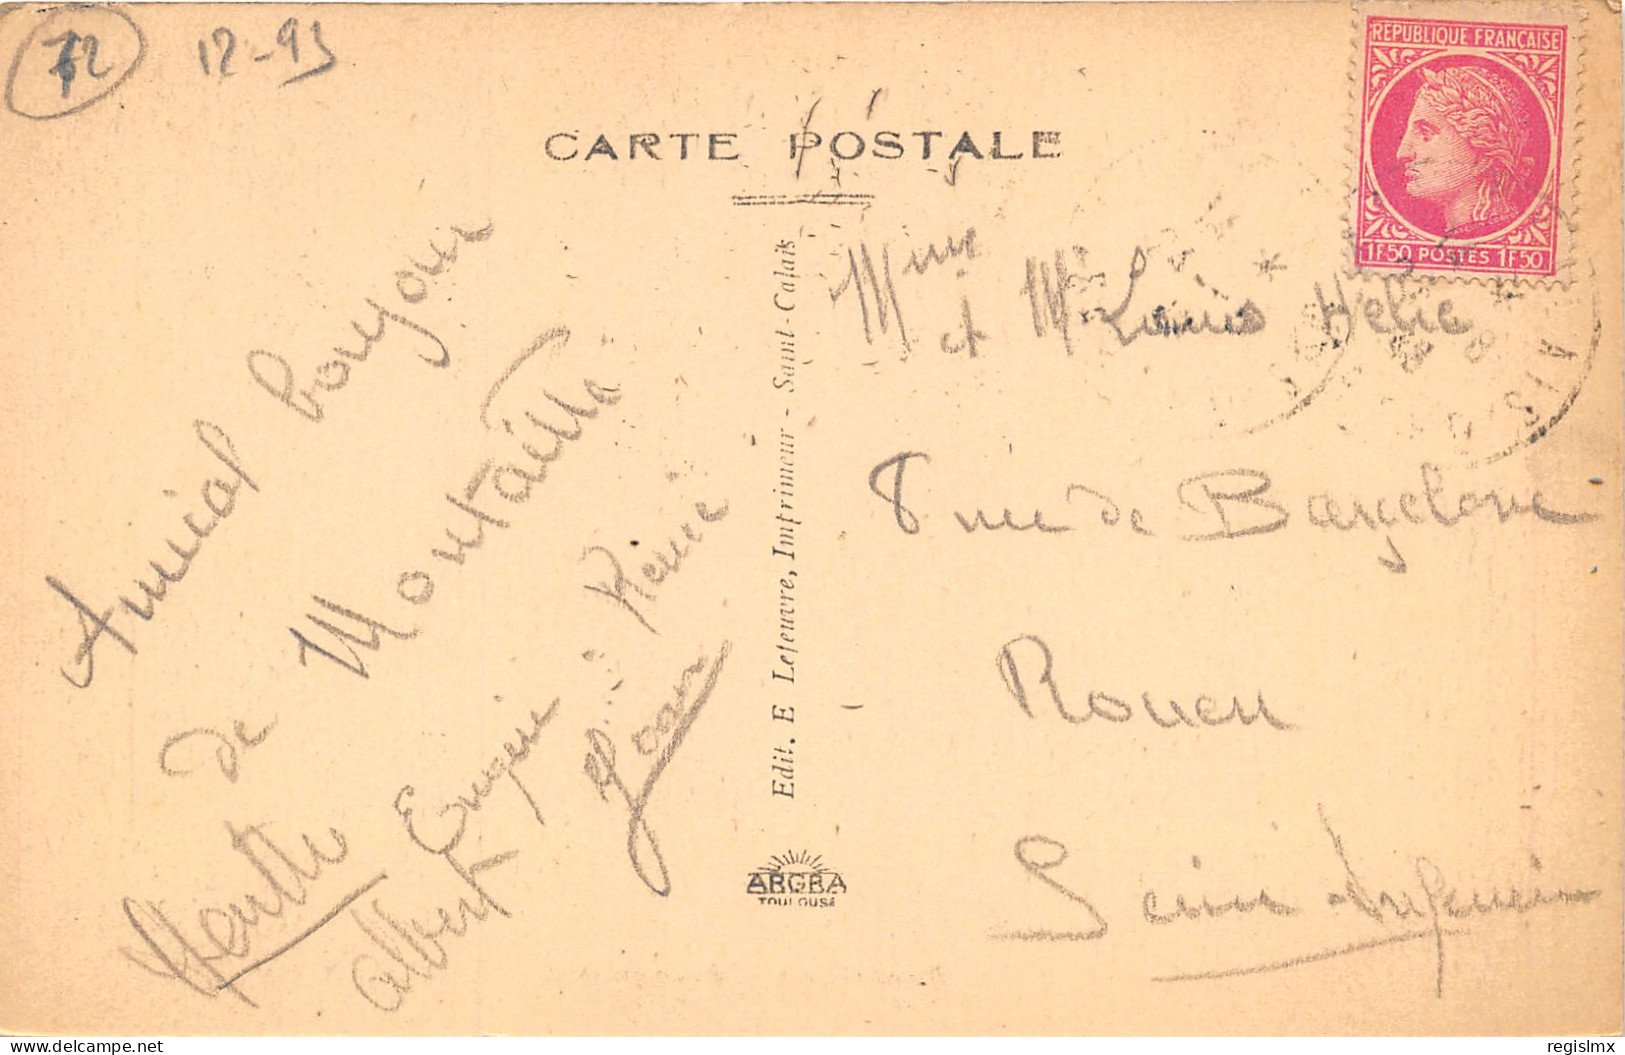 72
12-93
CARTE POSTALE
REPUBLIQUE FRANÇAISE
1F50 POSTES 1F50
Amical bonjour
de Montaillé
Eugène Pierre
albert Jean
Edit. E Lefeuvre, Imprimeur - Saint-Calais
ARGRA
TOULOUSE
Mme
et Mr Louis Hélie
8 rue de Barcelone
Rouen
Seine Inférieure
regislmx
delcampe.net